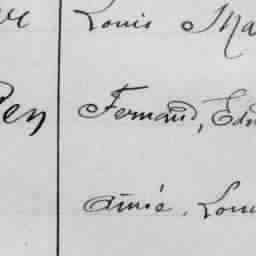 Louis Ma
Fernand, Edm
Aimé, Loui